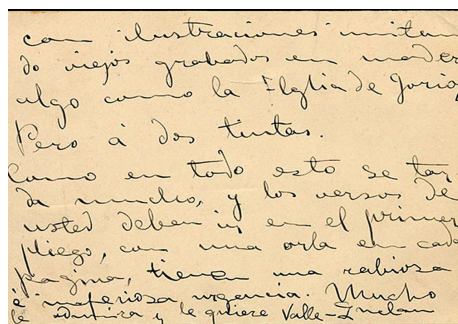 con ilustraciones imitan
do viejos grabados en mader
algo como la Ilglia de Gorio,
Pero á dos tintas.
Como en todo esto se tar
da mucho, y los versos de
usted deben ir en el primer
pliego, con una orla en cada
pagina, tienen una rabiosa
é imperiosa urgencia. Mucho
le admira y le quiere Valle-Inclan